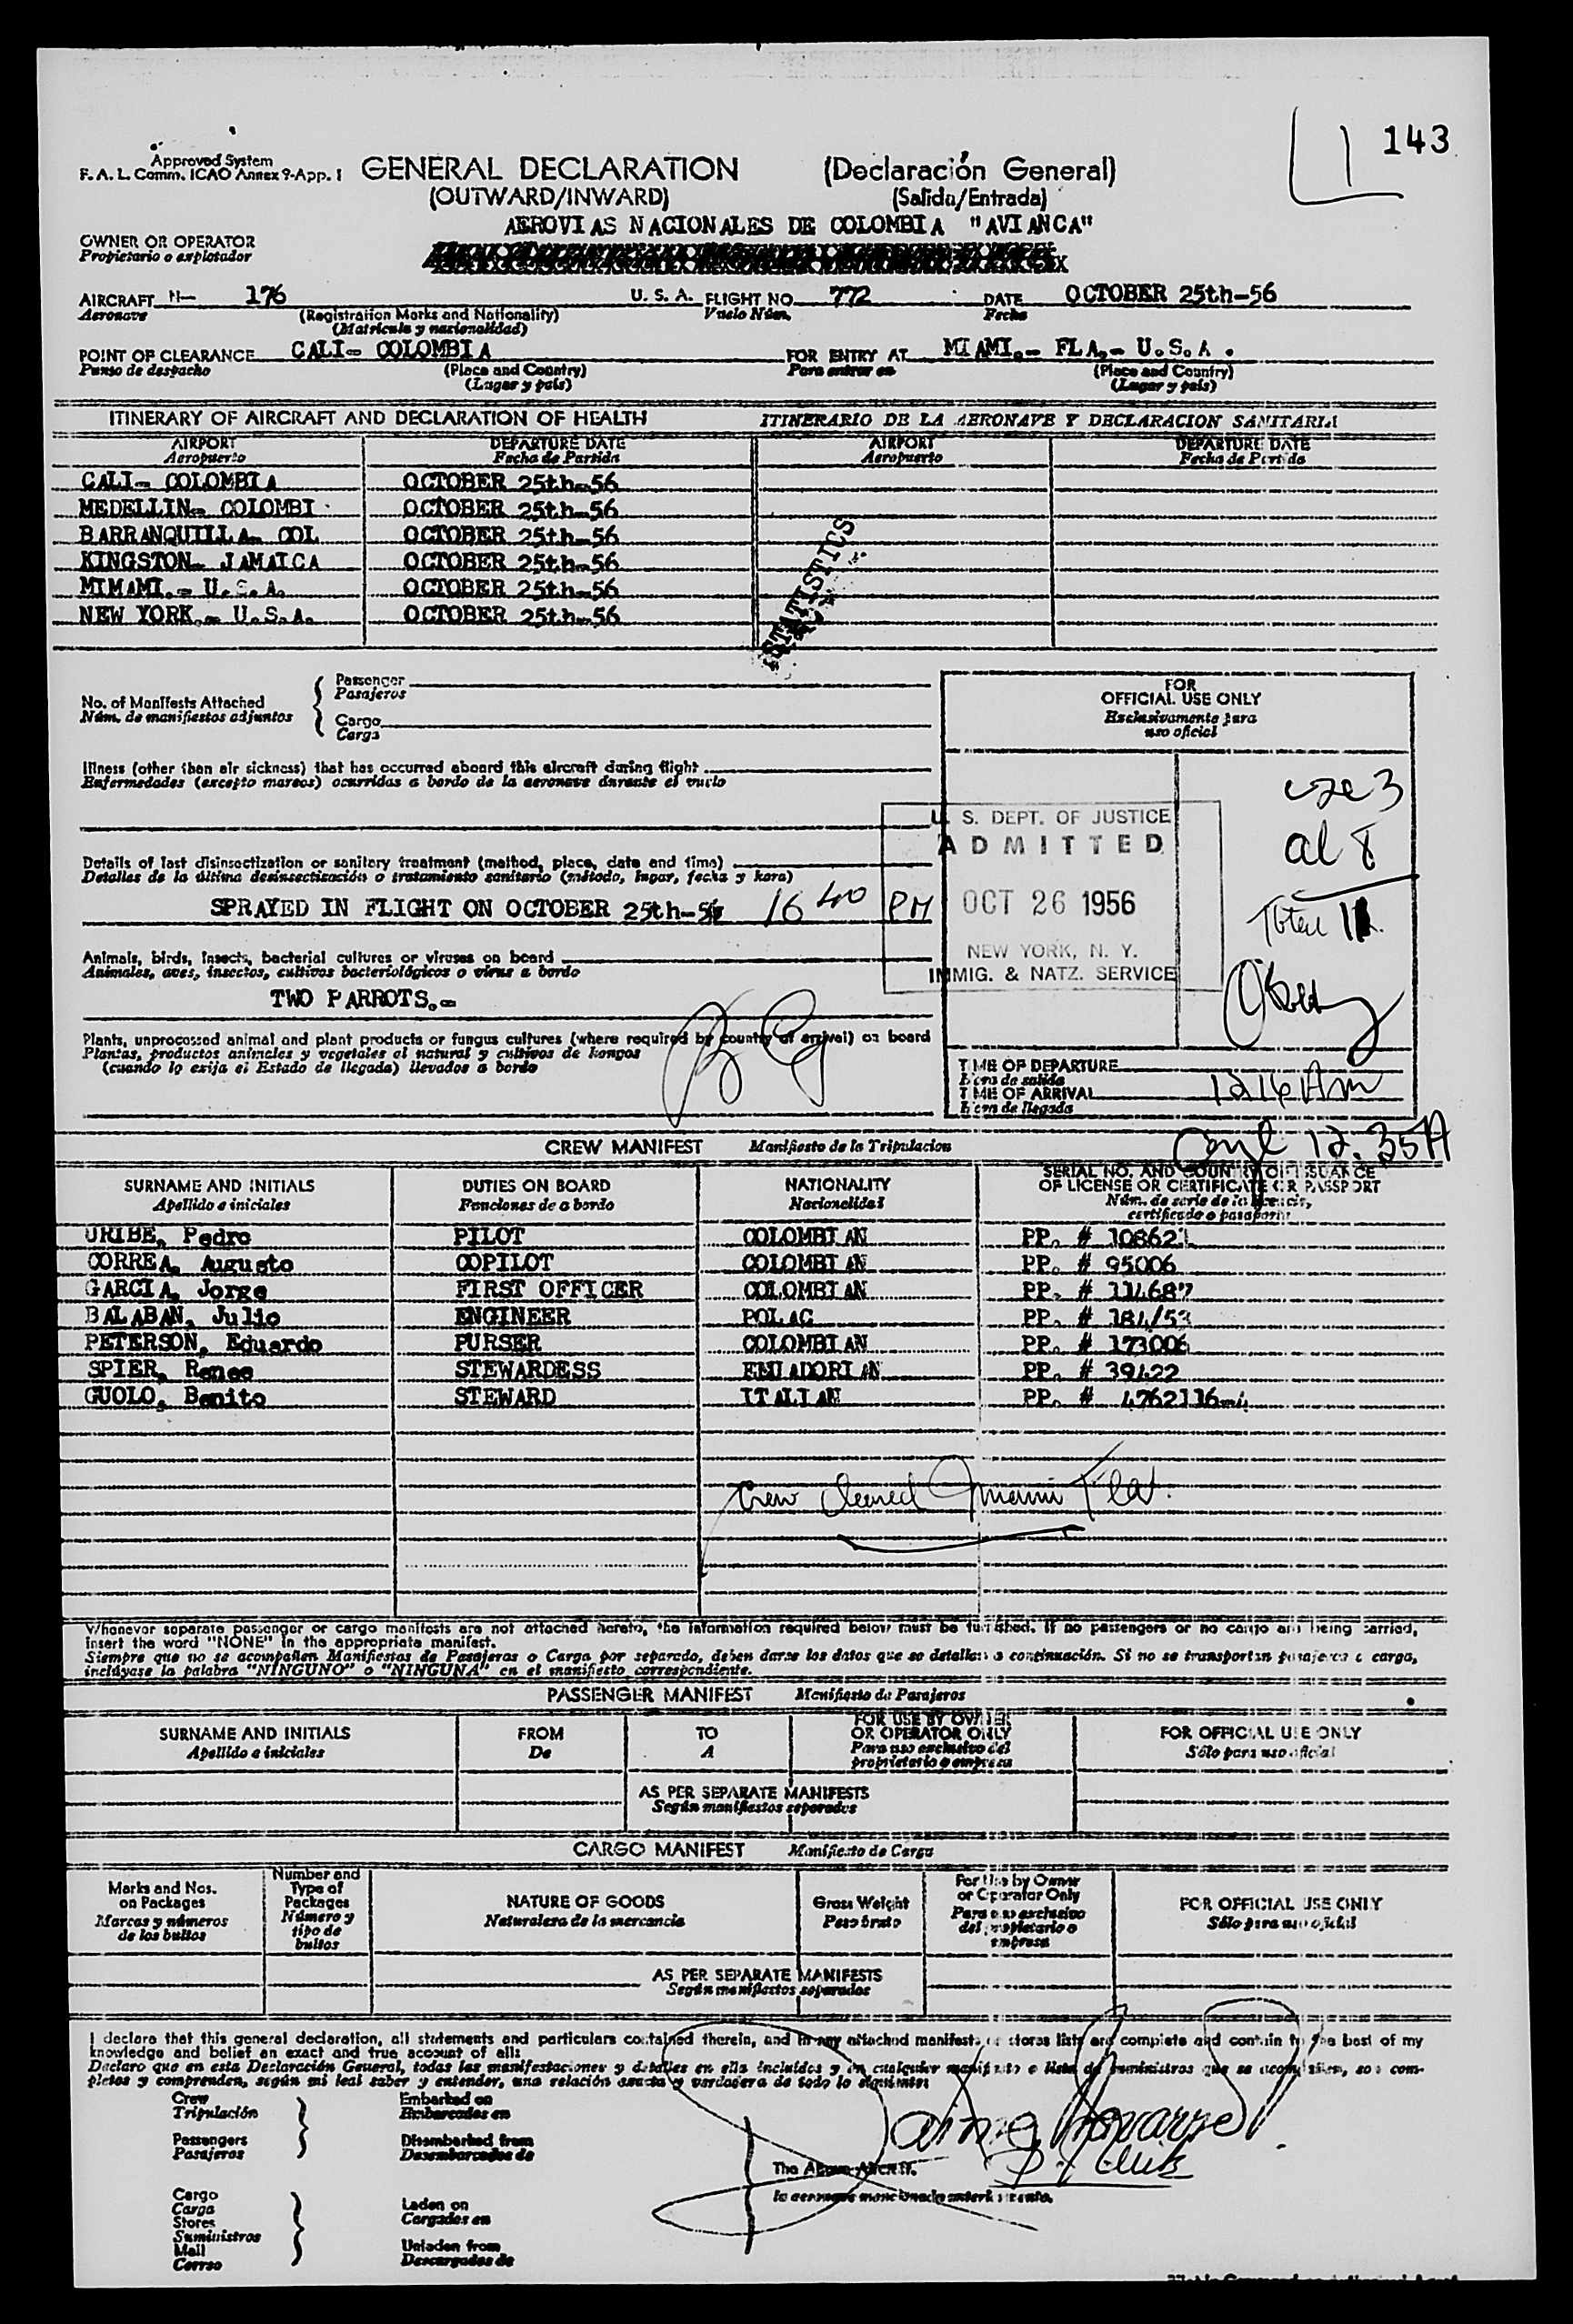 143
Approved System
F. A. L. Comm. ICAO Annex 9-App. 1
GENERAL DECLARATION (Declaración General)
(OUTWARD/INWARD) (Salida/Entrada)
AEROVIAS NACIONALES DE COLOMBIA "AVIANCA"
OWNER OR OPERATOR
Propietario o explotador
AIRCRAFT N- 176 U. S. A. FLIGHT NO. 772 DATE OCTOBER 25th-56
Aeronave (Registration Marks and Nationality) Vuelo Núm. Fecha
(Matrícula y nacionalidad)
POINT OF CLEARANCE CALI- COLOMBIA FOR ENTRY AT MIAMI.- FLA,- U.S.A.
Punto de despacho (Place and Country) Para entrar en (Place and Country)
(Lugar y país) (Lugar y país)
ITINERARY OF AIRCRAFT AND DECLARATION OF HEALTH ITINERARIO DE LA AERONAVE Y DECLARACION SANITARIA
AIRPORT DEPARTURE DATE AIRPORT DEPARTURE DATE
Aeropuerto Fecha de Partida Aeropuerto Fecha de Partida
CALI- COLOMBIA OCTOBER 25th-56
MEDELLIN- COLOMBI OCTOBER 25th-56
BARRANQUILLA- COL OCTOBER 25th-56
KINGSTON- JAMAICA OCTOBER 25th-56
MIMAMI.- U.S.A. OCTOBER 25th-56
NEW YORK.- U.S.A. OCTOBER 25th-56
STATISTICS
No. of Manifests Attached
Núm. de manifiestos adjuntos
Passenger
Pasajeros
Cargo
Carga
FOR
OFFICIAL USE ONLY
Exclusivamente para
uso oficial
Illness (other than air sickness) that has occurred aboard this aircraft during flight
Enfermedades (excepto mareos) ocurridas a bordo de la aeronave durante el vuelo
al 8
U. S. DEPT. OF JUSTICE
ADMITTED
OCT 26 1956
NEW YORK, N. Y.
IMMIG. & NATZ. SERVICE
Details of last disinsectization or sanitary treatment (method, place, date and time)
Detalles de la última desinsectización o tratamiento sanitario (método, lugar, fecha y hora)
SPRAYED IN FLIGHT ON OCTOBER 25th-56 16 40 PM
Animals, birds, insects, bacterial cultures or viruses on board
Animales, aves, insectos, cultivos bacteriológicos o virus a bordo
TWO PARROTS.-
Plants, unprocessed animal and plant products or fungus cultures (where required by country of arrival) on board
Plantas, productos animales y vegetales al natural y cultivos de hongos
(cuando lo exija el Estado de llegada) llevados a bordo
TIME OF DEPARTURE
Hora de salida
TIME OF ARRIVAL 1216 Am
Hora de llegada
12.35A
CREW MANIFEST Manifiesto de la Tripulacion
SURNAME AND INITIALS DUTIES ON BOARD NATIONALITY SERIAL NO. AND COUNTRY OF ISSUANCE
OF LICENSE OR CERTIFICATE OR PASSPORT
Apellido e iniciales Funciones de a bordo Nacionalidad Núm. de serie de la licencia,
certificado o pasaporte
URIBE, Pedro PILOT COLOMBIAN PP. # 108621
CORREA, Augusto COPILOT COLOMBIAN PP. # 95006
GARCIA, Jorge FIRST OFFICER COLOMBIAN PP. # 114687
BALABAN, Julio ENGINEER POLAC PP. # 184/53
PETERSON, Eduardo PURSER COLOMBIAN PP. # 173006
SPIER, Renee STEWARDESS PP. # 39422
GUOLO, Benito STEWARD ITALIAN PP. # 4762116
Crew cleared Miami Fla.
Whenever separate passenger or cargo manifests are not attached hereto, the information required below must be furnished. If no passengers or no cargo are being carried,
insert the word "NONE" in the appropriate manifest.
Siempre que no se acompañen Manifiestos de Pasajeros o Carga por separado, deben darse los datos que se detallan a continuación. Si no se transportan pasajeros o carga,
inclúyase la palabra "NINGUNO" o "NINGUNA" en el manifiesto correspondiente.
PASSENGER MANIFEST Manifiesto de Pasajeros
SURNAME AND INITIALS FROM TO FOR USE BY OWNER FOR OFFICIAL USE ONLY
OR OPERATOR ONLY
Apellido e iniciales De A Para uso exclusivo del Sólo para uso oficial
propietario o empresa
AS PER SEPARATE MANIFESTS
Según manifiestos separados
CARGO MANIFEST Manifiesto de Carga
Marks and Nos.
on Packages
Marcas y números
de los bultos
Number and
Type of
Packages
Número y
tipo de
bultos
NATURE OF GOODS
Naturaleza de la mercancía
Gross Weight
Peso bruto
For Use by Owner
or Operator Only
Para uso exclusivo
del propietario o
empresa
FOR OFFICIAL USE ONLY
Sólo para uso oficial
AS PER SEPARATE MANIFESTS
Según manifiestos separados
I declare that this general declaration, all statements and particulars contained therein, and in any attached manifests or stores lists are complete and contain to the best of my
knowledge and belief an exact and true account of all:
Declaro que en esta Declaración General, todas las manifestaciones y detalles en ella incluidos y en cualquier manifiesto o lista de suministros que se acompañen, son com-
pletos y comprenden, según mi leal saber y entender, una relación exacta y verdadera de todo lo siguiente:
Crew
Tripulación
Passengers
Pasajeros
Embarked on
Embarcados en
Disembarked from
Desembarcados de
Cargo
Carga
Stores
Suministros
Mail
Correo
Laden on
Cargados en
Unladen from
Descargados de
The Above Aircraft.
la aeronave mencionada anteriormente.